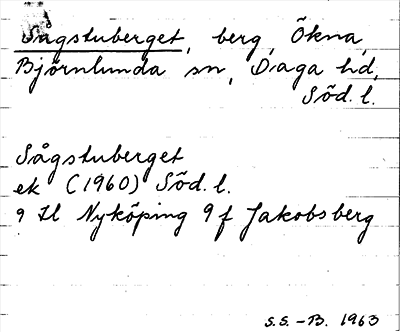 Sågstuberget, berg, Ökna,
Björnlunda sn, Daga hd,
Söd. l.
Sågstuberget
ek (1960) Söd. l.
9 Il Nyköping 9 f Jakobsberg
S.S. - B. 1963